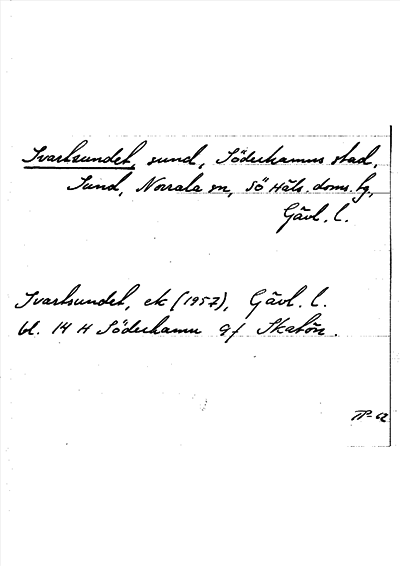 Svartsundet, sund, Söderhamns stad,
Sund, Norrala sn, Sö Häls. doms. tg,
Gävl. l.
Svartsundet, ek (1957), Gävl. l.
bl. 14 H Söderhamn 9f Skatön.